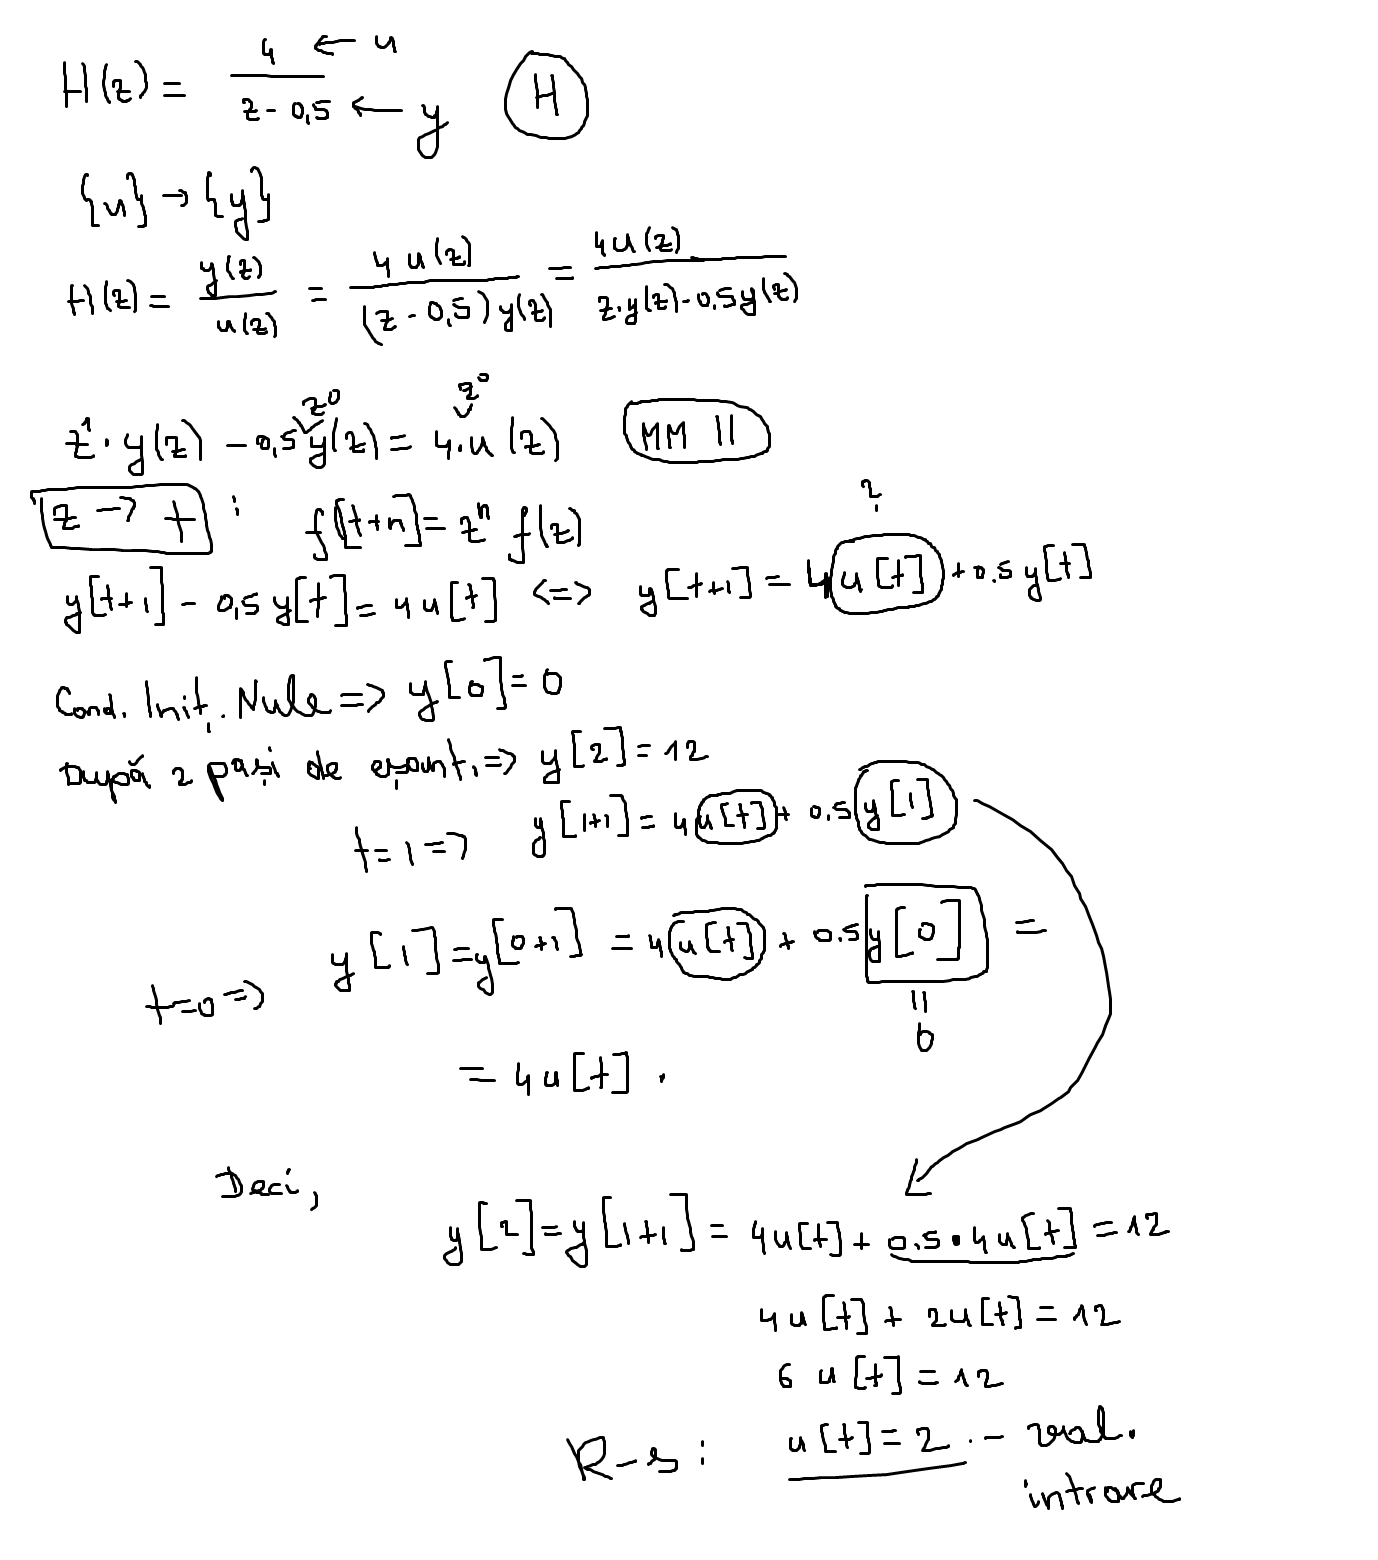 H(z) = 4 / (z - 0,5) ← u ← y (H)
{u} → {y}
H(z) = y(z) / u(z) = 4 u(z) / (z - 0,5) y(z) = 4u(z) / z·y(z) - 0,5y(z)
z^0 z^0
z^1 · y(z) - 0,5 y(z) = 4·u(z) MM II
z → t : f[t+n] = z^n f(z)
?
y[t+1] - 0,5 y[t] = 4u[t] <=> y[t+1] = 4u[t] + 0.5 y[t]
Cond. Iniț. Nule => y[0] = 0
După 2 pași de eșant. => y[2] = 12
t=1 => y[1+1] = 4u[t] + 0.5y[1]
t=0 => y[1] = y[0+1] = 4u[t] + 0.5y[0] =
||
0
= 4u[t].
Deci,
y[2] = y[1+1] = 4u[t] + 0.5 • 4u[t] = 12
4u[t] + 2u[t] = 12
6 u[t] = 12
R-s: u[t] = 2 .- val.
intrare